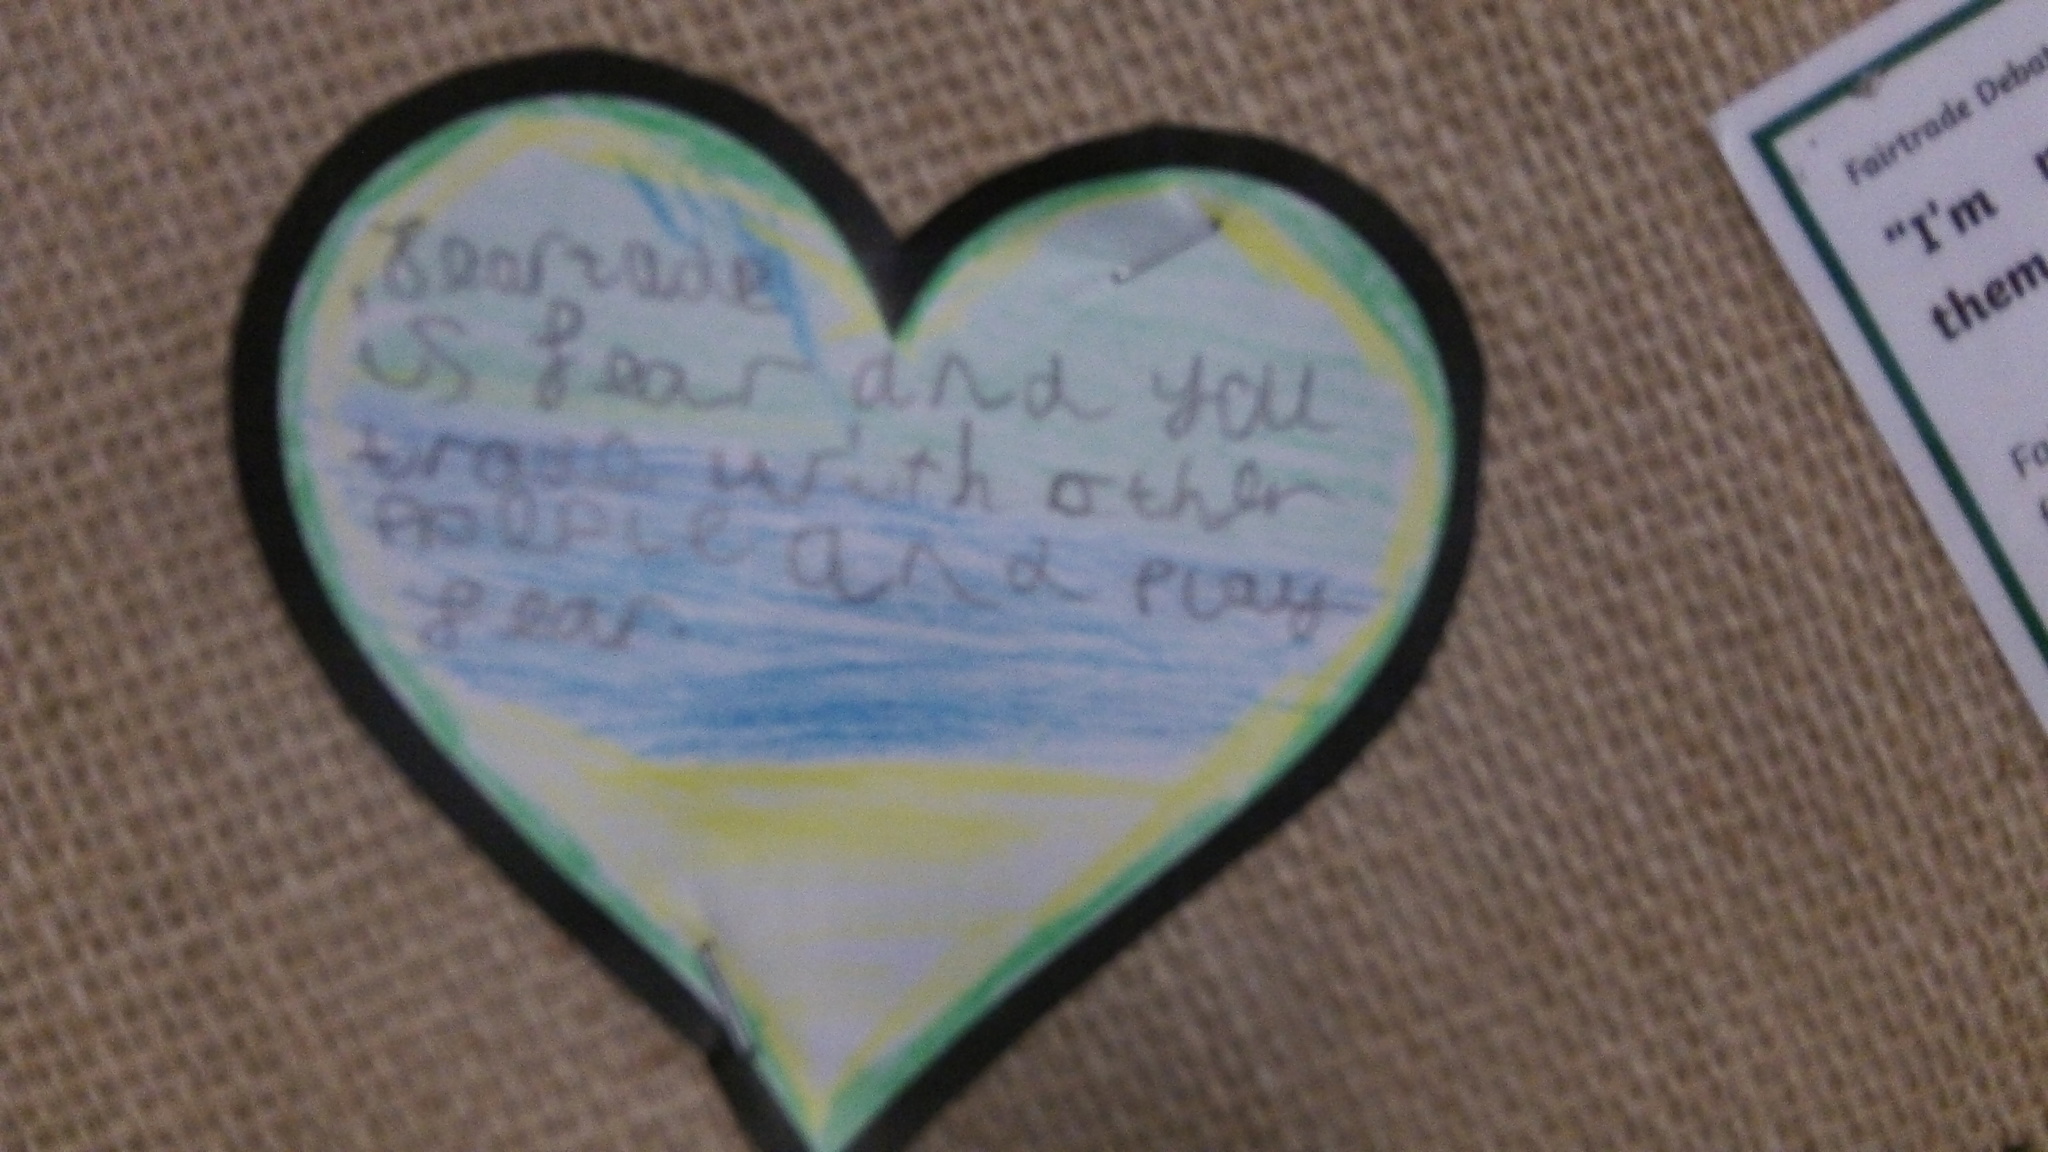 feartrade
is fear and you
trade with other
people and play
fear.
Fairtrade Deba
"I'm
them
Fo